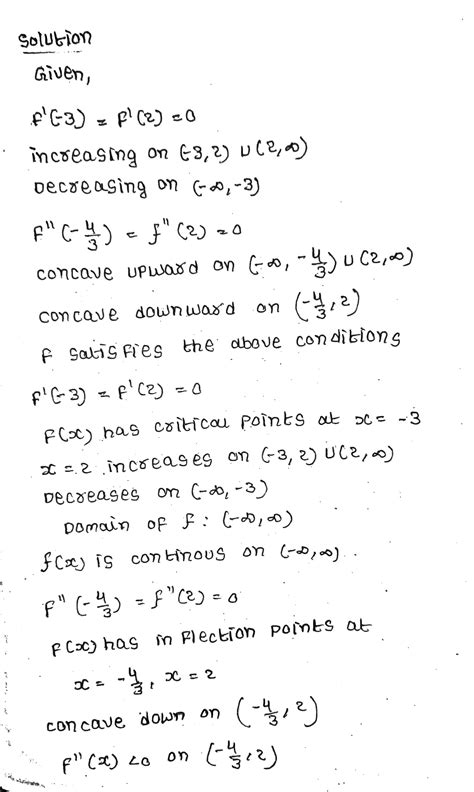 Solution
Given,
f'(-3) = f'(2) = 0
increasing on (-3,2) U (2,∞)
Decreasing on (-∞,-3)
f''(-4/3) = f''(2) = 0
concave upward on (-∞, -4/3) U (2,∞)
concave downward on (-4/3, 2)
f satisfies the above conditions
f'(-3) = f'(2) = 0
f(x) has critical points at x = -3
x = 2 increases on (-3, 2) U (2,∞)
Decreases on (-∞,-3)
Domain of f : (-∞,∞)
f(x) is continous on (-∞,∞).
f''(-4/3) = f''(2) = 0
f(x) has inflection points at
x = -4/3, x = 2
concave down on (-4/3, 2)
f''(x) <0 on (-4/3, 2)